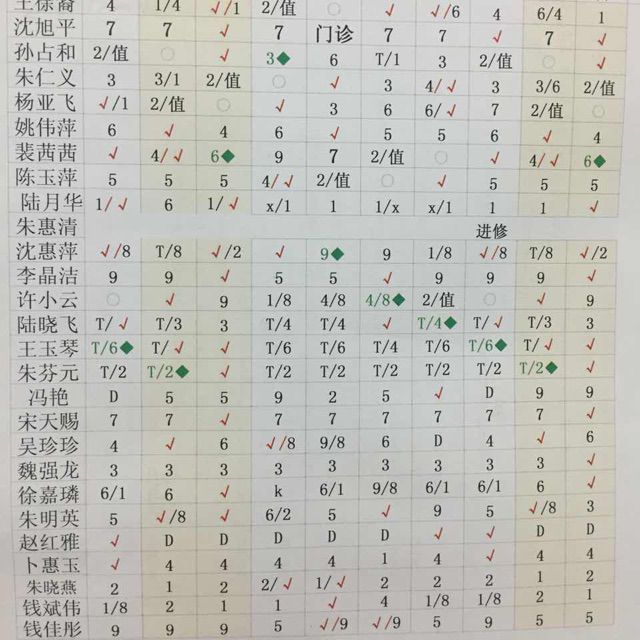 王徐裔 4 1/4 √/1 2/值 ○ √ √/6 4 6/4 1
沈旭平 7 7 √ 7 门诊 7 7 √ 7 √
孙占和 2/值 ○ √ 3◆ 6 T/1 3 2/值 ○ √
朱仁义 3 3/1 2/值 ○ √ 3 4/√ 3 3/6 2/值
杨亚飞 √/1 2/值 ○ √ 3 6 6/√ 7 2/值 ○
姚伟萍 6 √ 4 6 √ 5 5 6 √ 4
裴茜茜 √ 4/√ 6◆ 9 7 2/值 ○ √ 4/√ 6◆
陈玉萍 5 5 5 4/√ 2/值 ○ √ 5 5 5
陆月华 1/√ 6 1/√ x/1 1 1/x x/1 1 1 √
朱惠清 进修
沈惠萍 √/8 T/8 √/2 √ 9◆ 9 1/8 √/8 T/8 √/2
李晶洁 9 9 √ 5 5 √ 9 9 9 √
许小云 ○ √ 9 1/8 4/8 4/8◆ 2/值 ○ √ 9
陆晓飞 T/√ T/3 3 T/4 T/4 √ T/4◆ T/√ T/3 3
王玉琴 T/6◆ T/√ √ T/6 T/6 T/4 T/6 T/6◆ T/√ √
朱芬元 T/2 T/2◆ √ T/2 T/2 T/2 T/2 T/2 T/2◆ √
冯艳 D 5 5 9 2 5 √ D 9 9
宋天赐 7 7 √ 7 7 7 7 7 7 √
吴珍珍 4 √ 6 √/8 9/8 6 D 4 √ 6
魏强龙 3 3 3 3 3 3 3 3 3 √
徐嘉璘 6/1 6 √ k 6/1 9/8 6/1 6/1 6 √
朱明英 5 √/8 √ 6/2 5 √ 9 5 √/8 3
赵红雅 √ D D D D √ √ D D
卜惠玉 √ 4 4 4 4 1 4 √ 4 4
朱晓燕 2 1 2 2/√ 1/√ 2 2 2 1 2
钱斌伟 1/8 2 1 1 √ 4 1/8 1/8 2 1
钱佳彤 9 9 9 5 √/9 √/9 5 9 5 5